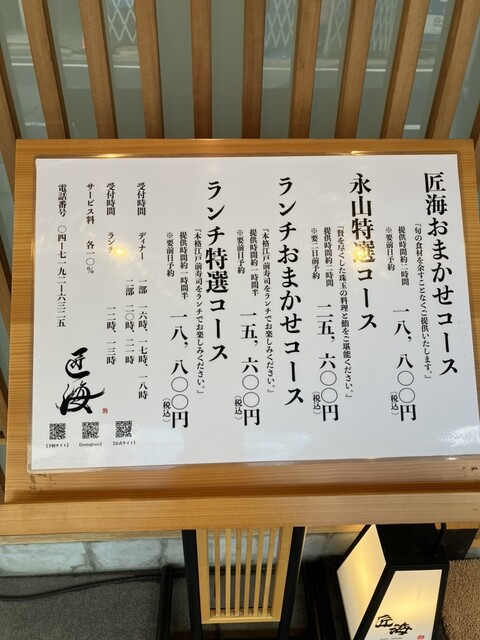 匠海おまかせコース
『旬の食材を余すことなくご提供いたします。』
提供時間約二時間
※要前日予約
一八，八〇〇円(税込)
永山特選コース
『贅を尽くした珠玉の料理と鮨をご堪能ください。』
提供時間約二時間
※要二日前予約
二五，六〇〇円(税込)
ランチおまかせコース
『本格江戸前寿司をランチでお楽しみください。』
提供時間約一時間半
※要前日予約
一五，六〇〇円(税込)
ランチ特選コース
『本格江戸前寿司をランチでお楽しみください。』
提供時間約一時間半
※要前日予約
一八，八〇〇円(税込)
受付時間 ディナー 一部 一六時、一七時、一八時
二部 二〇時、二一時
受付時間 ランチ 一二時、一三時
サービス料 各一〇%
電話番号 〇四-七一九二-六三二五
匠海
【予約サイト】
【Instagram】
【公式サイト】
匠海